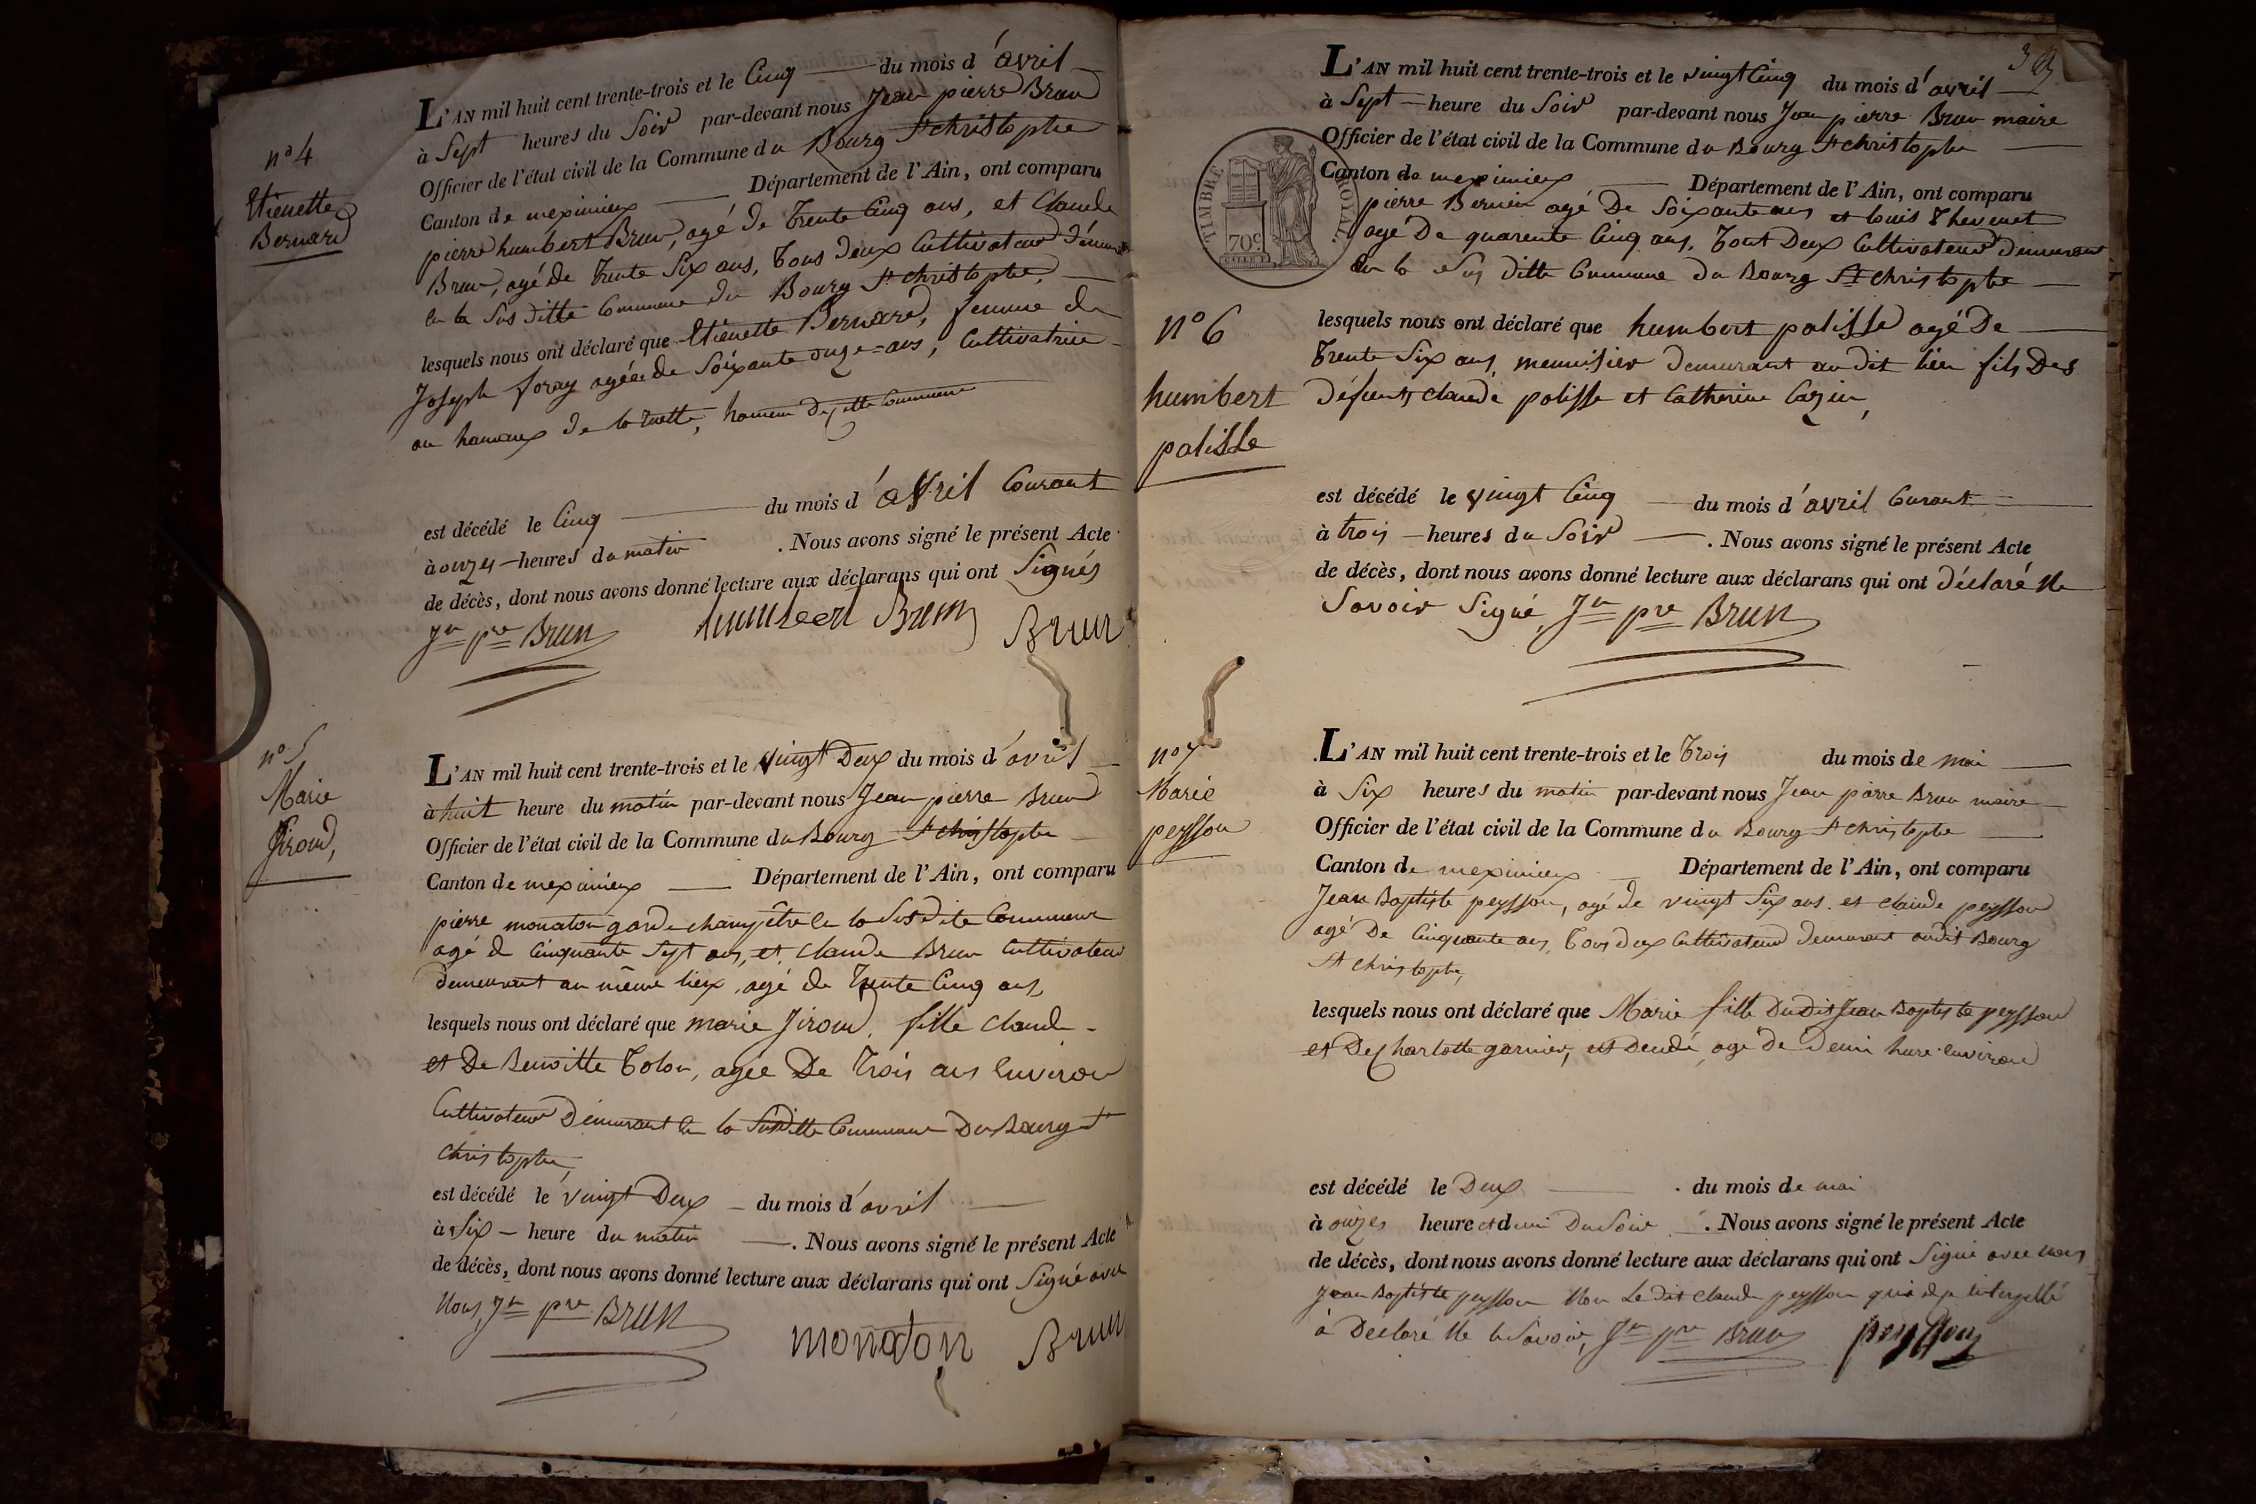 n° 4
Etienette
Bernard
L'AN mil huit cent trente-trois et le Cinq du mois d'avril
à Sept heures du Soir par-devant nous Jean pierre Brun
Officier de l'état civil de la Commune du Bourg St christophe
Canton de meximieux Département de l'Ain, ont comparu
pierre humbert Brun, agé de trente Cinq ans, et Claude
Brun, agé de trente Six ans, tous deux Cultivateur démurant
en la Sus ditte Commune du Bourg St christophe,
lesquels nous ont déclaré que Etienette Bernard, femme de
Joseph foray agée de Soixante onze ans, Cultivatrice
au hameaux de la ruette, hameau de ditte Commune
est décédé le Cinq du mois d'avril Courant
à onzes heures du matin . Nous avons signé le présent Acte
de décès, dont nous avons donné lecture aux déclarans qui ont Signés
Jn pre Brun humbert Brun Brun
n° 5
Marie
Jiroud,
L'AN mil huit cent trente-trois et le vingt Deux du mois d'avril
à huit heure du matin par-devant nous Jean pierre Brun
Officier de l'état civil de la Commune du Bourg St christophe
Canton de meximieux Département de l'Ain, ont comparu
pierre monaton garde champêtre de la Susdite Commune
agé de Cinquante Sept ans, et Claude Brun Cultivateur
demeurant au même lieux, agé de Trente Cinq ans,
lesquels nous ont déclaré que marie Jiroud, fille Claude
et De Benoitte Tolon, agée De Trois ans Environ
Cultivateur Démurant en la Susditte Commune Du Bourg St
christophe,
est décédé le vingt Deux du mois d'avril
à Six heure du matin . Nous avons signé le présent Acte
de décès, dont nous avons donné lecture aux déclarans qui ont Signé avec
Nous, Jn pre Brun monaton Brun
TIMBRE ROYAL
70c
n° 6
humbert
palisse
L'AN mil huit cent trente-trois et le vingt Cinq du mois d'avril
à Sept heure du Soir par-devant nous Jean pierre Brun maire
Officier de l'état civil de la Commune du Bourg St christophe
Canton de meximieux Département de l'Ain, ont comparu
pierre Bernin agé De Soixante ans et louis Thevenet
agé De quarente Cinq ans, Tout Deux Cultivateur Dimurant
en la Sus ditte Commune du Bourg St christophe
lesquels nous ont déclaré que humbert palisse agé De
Trente Six ans, menuisier Demurant au dit lieu fils Des
Défunts claude palisse et Catherine Cazin,
est décédé le vingt Cinq du mois d'avril Courant
à trois heures du Soir . Nous avons signé le présent Acte
de décès, dont nous avons donné lecture aux déclarans qui ont déclaré Ne
Savoir Signé, Jn pre Brun
n° 7
Marie
peysson
L'AN mil huit cent trente-trois et le Trois du mois de mai
à Six heures du matin par-devant nous Jean pierre Brun maire
Officier de l'état civil de la Commune du Bourg St christophe
Canton de meximieux Département de l'Ain, ont comparu
Jean Baptiste peysson, agé de vingt Six ans et claude peysson
agé De Cinquante ans, Tous deux Cultivateur Demurant audit Bourg
St christophe,
lesquels nous ont déclaré que Marie fille Dudit Jean Baptiste peysson
et De Charlotte garnier, agé de Demi hure environ
est décédé le Deux du mois de mai
à onzes heure et demi Du Soir . Nous avons signé le présent Acte
de décès, dont nous avons donné lecture aux déclarans qui ont Signé avec Nous
Jean Baptiste peysson Non Le Dit claude peysson qui interpellé
à Déclaré Ne le Savoir, Jn pre Brun peysson